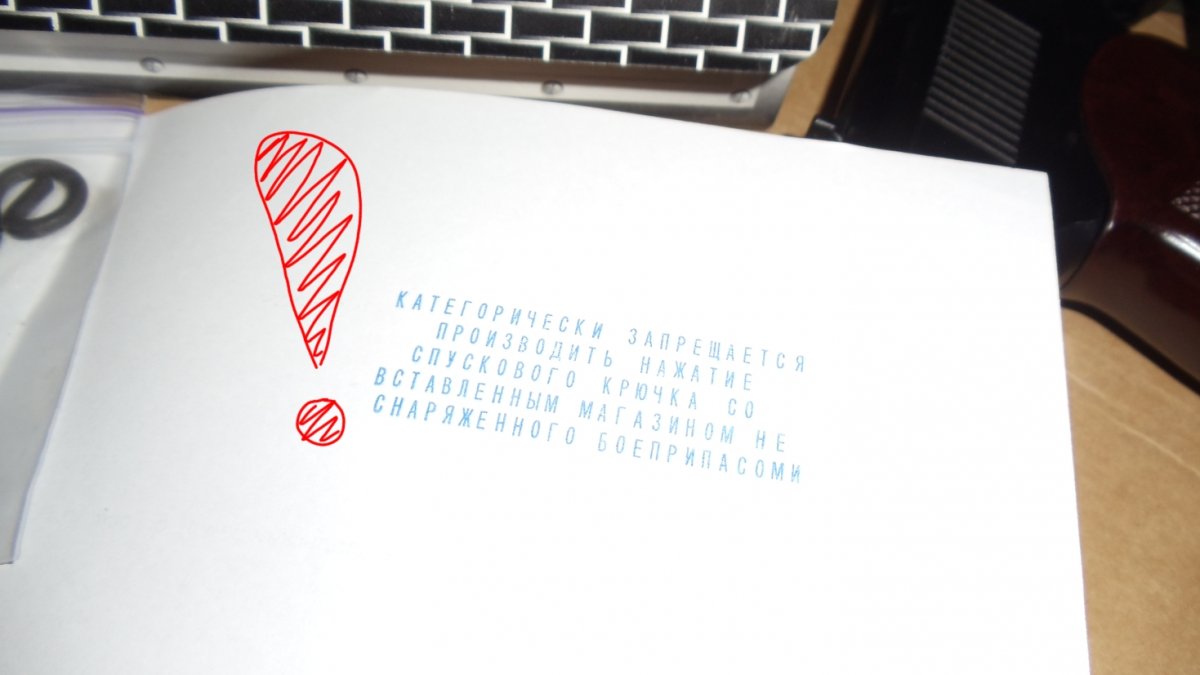 КАТЕГОРИЧЕСКИ ЗАПРЕЩАЕТСЯ
ПРОИЗВОДИТЬ НАЖАТИЕ
СПУСКОВОГО КРЮЧКА СО
ВСТАВЛЕННЫМ МАГАЗИНОМ НЕ
СНАРЯЖЕННОГО БОЕПРИПАСОМИ